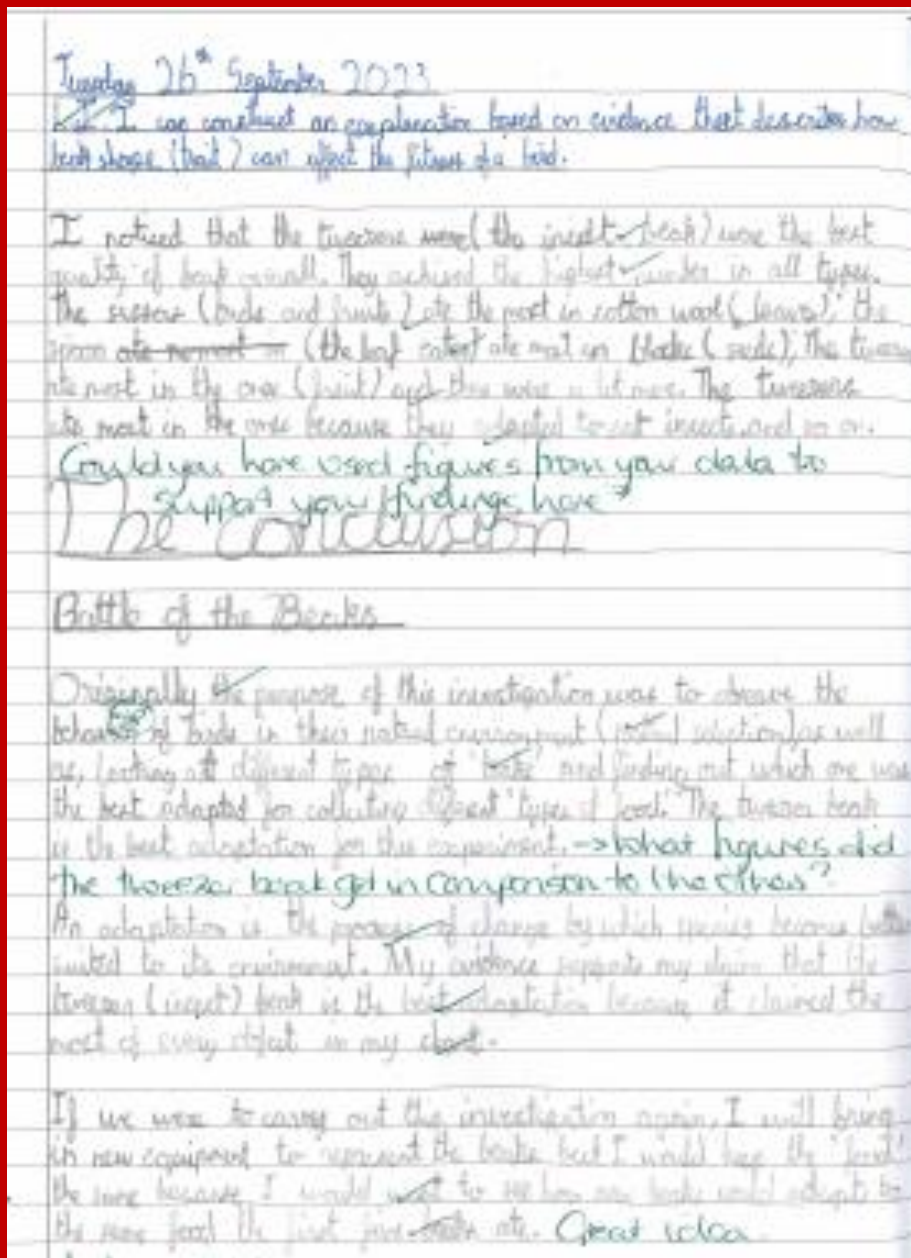 Tuesday 26th September 2023
I can construct an explanation based on evidence that describes how
beak shape (trait) can affect the fitness of a bird.
I noticed that the tweezers were (the insect beak) were the best
quality of beak overall. They achieved the highest number in all types.
The (birds and fruits) ate the most in cotton wool (leaves), the
spoon ate most in (the leaf eater) ate most in blocks (seeds), The
ate most in the ones (fruit) and there were a lot more. The tweezers
ate most in the ones because they adapted to eat insects and so on.
Could you have used figures from your data to
support your findings here?
The conclusion
Battle of the Beaks
Originally the purpose of this investigation was to observe the
of birds in their natural environment (natural selection) as well
as, looking at different types of 'beaks' and finding out which one was
the best adapted for collecting different 'types of food.' The tweezer beak
is the best adaptation for this experiment. -> What figures did
the tweezer beak get in comparison to the others?
An adaptation is the process of change by which species become better
suited to its enviroment. My evidence supports my claim that the
tweezers (insect) beak is the best adaptation because it claimed the
most of every object in my chart.
If we were to carry out this investigation again, I will bring
in new equipment to represent the beaks but I would keep the 'food'
the same because I would want to see how new beaks would adapt to
the same food the first beaks ate. Great idea